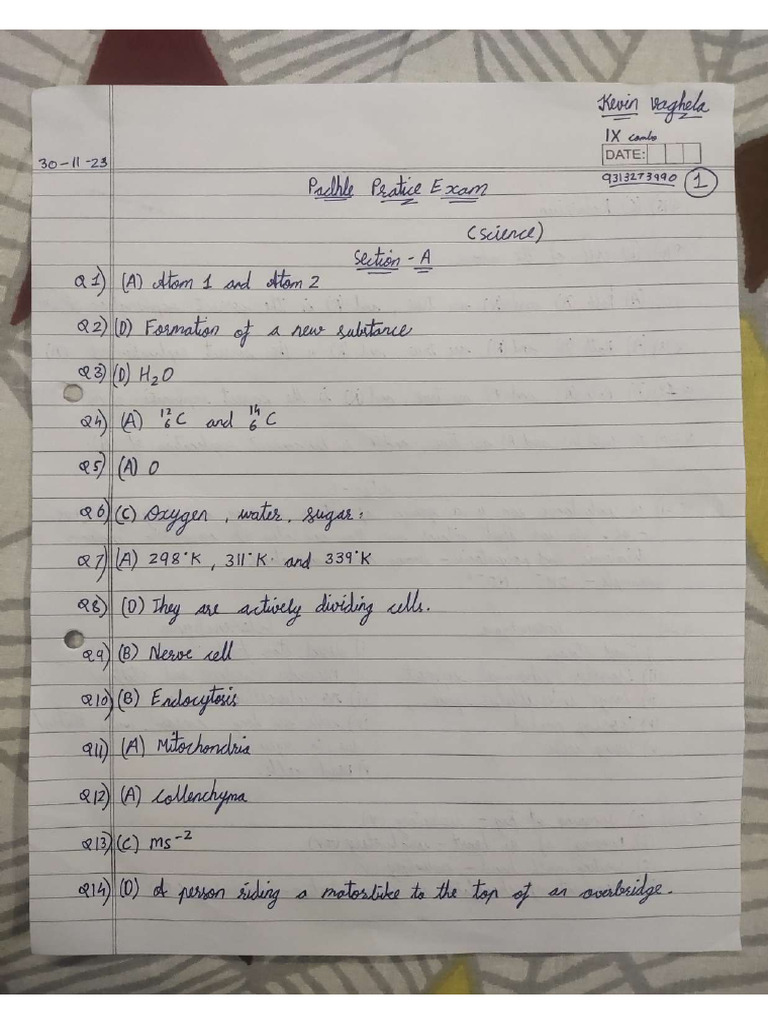 Kevin Vaghela
IX combo
30-11-23
DATE:
9313273990
1
Padhle Pratice Exam
(Science)
Section - A
Q1) (A) Atom 1 and Atom 2
Q2) (D) Formation of a new substance
Q3) (D) H₂O
Q4) (A) ¹²₆C and ¹⁴₆C
Q5) (A) O
Q6) (C) Oxygen, water, sugar.
Q7) (A) 298°K, 311°K. and 339°K
Q8) (D) They are actively dividing cells.
Q9) (B) Nerve cell
Q10) (B) Endocytosis
Q11) (A) Mitochondria
Q12) (A) Collenchyma
Q13) (C) ms⁻²
Q14) (D) A person riding a motorbike to the top of an overbridge.